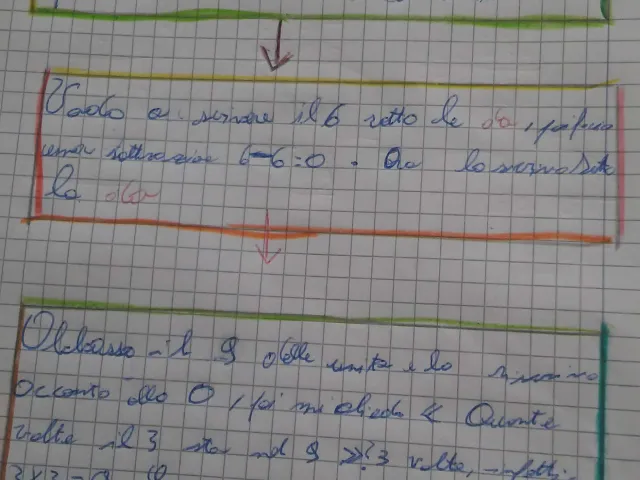 Vado a scrivere il 6 sotto le da, poi faccio
una sottrazione 6-6=0. Ora lo scrivo sotto
la da
Abbasso il 9 delle unità e lo
accanto allo 0, poi mi chiedo < Quante
volte il 3 sta nel 9 >>? 3 volte, infatti
3x3=9